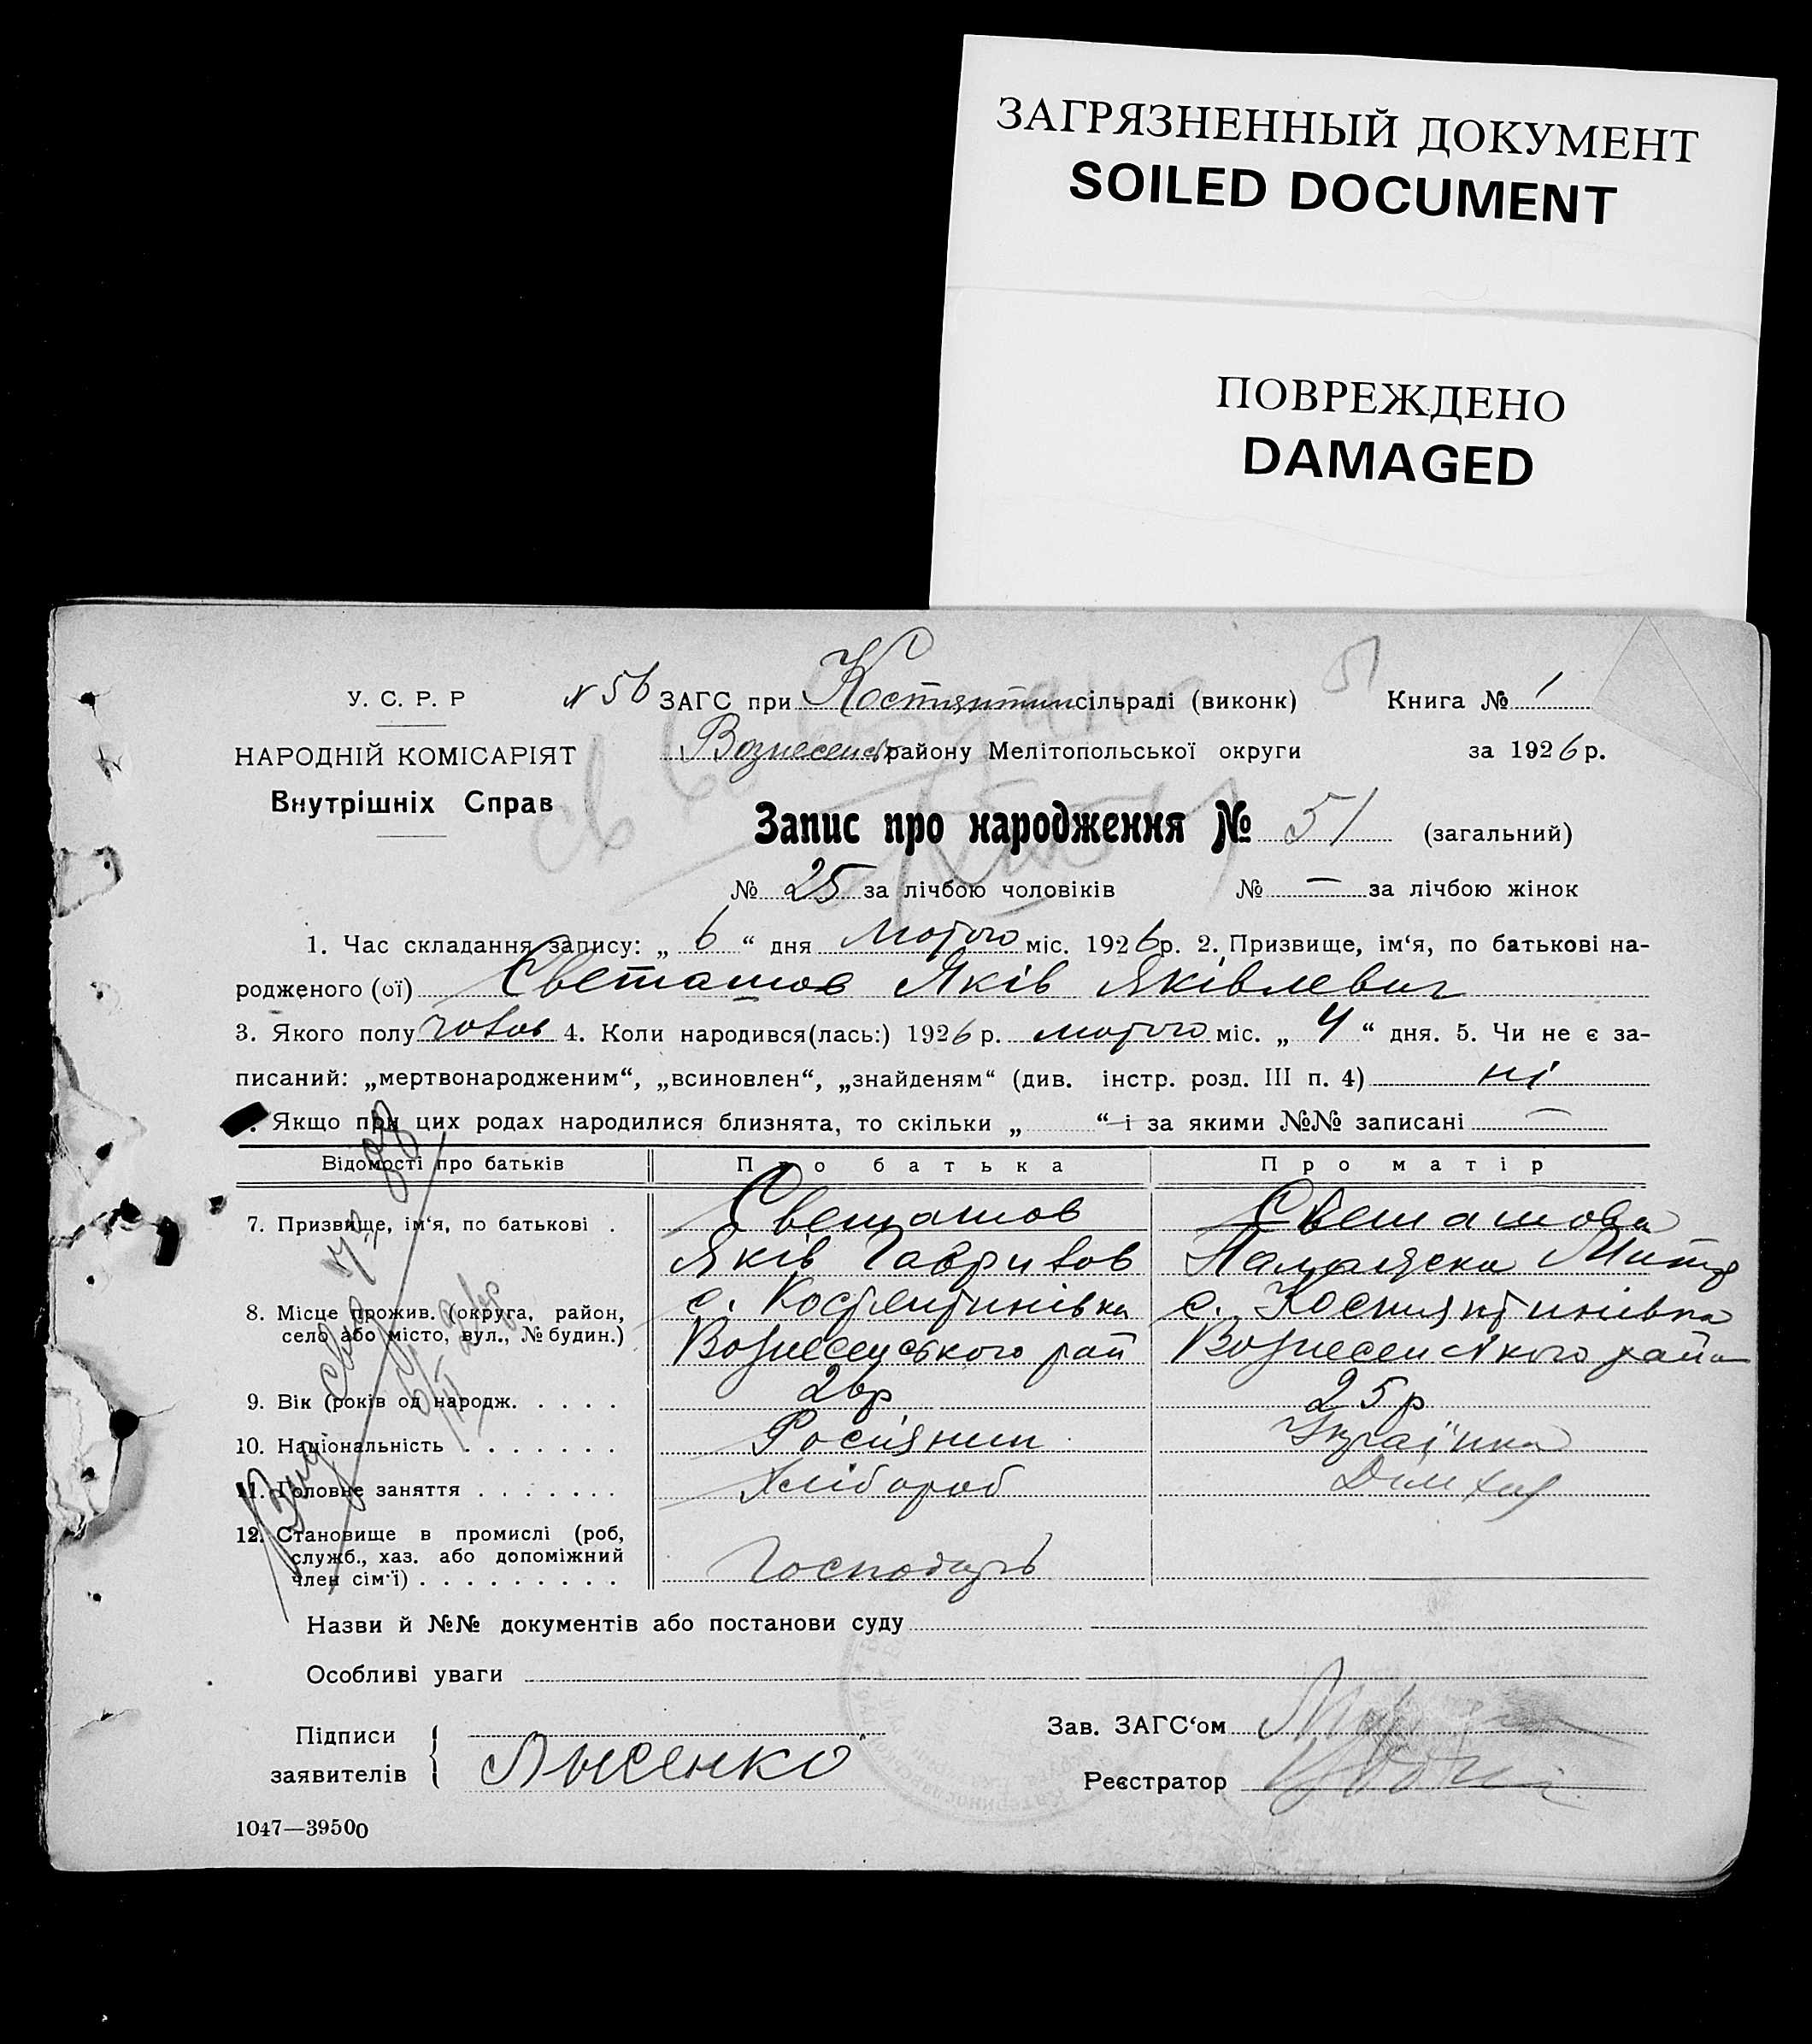 ЗАГРЯЗНЕННЫЙ ДОКУМЕНТ
SOILED DOCUMENT
ПОВРЕЖДЕНО
DAMAGED
У. С. Р. Р
НАРОДНІЙ КОМІСАРІЯТ
Внутрішніх Справ
№ 56 ЗАГС при Костянтин сільраді (виконк) Книга № 1
Вознесенс району Мелітопольської округи за 1926 р.
51
Запис про народження № 51 (загальний)
№ 25 за лічбою чоловіків № — за лічбою жінок
1. Час складання запису: „ 6 “ дня Лютого міс. 1926 р. 2. Призвище, ім‘я, по батькові на-
родженого (ої) Светашов Яків Яківлевич
3. Якого полу чолов 4. Коли народився(лась:) 1926 р. лютого міс. „ 4 “ дня. 5. Чи не є за-
писаний: „мертвонародженим“, „всиновлен“, „знайденям“ (див. інстр. розд. III п. 4) ні
. Якщо при цих родах народилися близнята, то скільки „ “ і за якими №№ записані —
Відомості про батьків Про батька Про матір
7. Призвище, ім‘я, по батькові . Светашов Светашова
Яків Гаврилов
8. Місце прожив. (округа, район, село або місто, вул., № будин.) с. Костянтинівка с. Костянтинівка
Вознесенського рай Вознесенського райо
9. Вік (років од народж. . . . . 26р 25р
10. Національність . . . . . . . Росіянин Українка
11. Головне заняття . . . . . . . Хлібороб Дом хаз
12. Становище в промислі (роб, служб., хаз. або допоміжний член сім‘ї) . . . . . . . . . Господарь
Назви й №№ документів або постанови суду
Особливі уваги
Підписи заявителів Лысенко
Зав. ЗАГС‘ом
Реєстратор
1047—39500